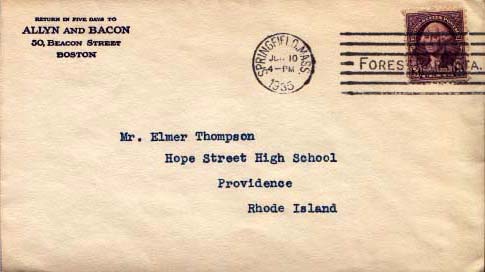 RETURN IN FIVE DAYS TO
ALLYN AND BACON
50, BEACON STREET
BOSTON
SPRINGFIELD, MASS.
JUN 10
4-PM
1935
FOREST STA.
Mr. Elmer Thompson
Hope Street High School
Providence
Rhode Island